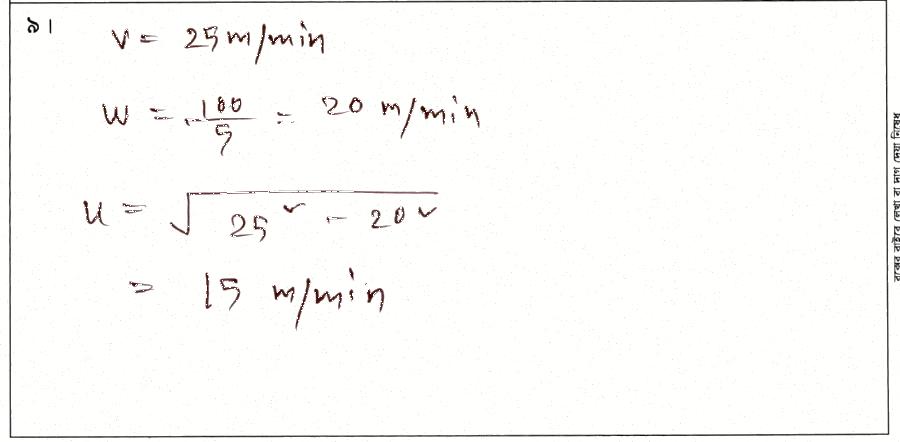 ৯।
v = 25 m/min
w = 100/5 = 20 m/min
u = √(25² - 20²)
= 15 m/min
বক্সের বাইরে লেখা বা দাগ দেয়া নিষেধ